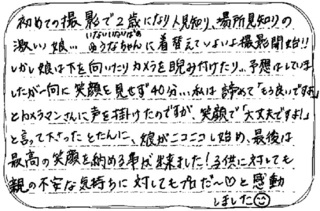 初めての撮影で2歳になり人見知り、場所見知りの
激しい娘…いないいないばぁのうーなちゃんに着替えていよいよ撮影開始!!
しかし娘は下を向いたりカメラを睨み付けたり…予想はしていま
したが一向に笑顔を見せず40分…私は諦めて「もう良いですね」
とカメラマンさんに声を掛けたのですが、笑顔で「大丈夫ですよ!」
と言って下さったとたんに、娘がニコニコし始め、最後は
最高の笑顔を納める事が出来ました!子供に対しても
親の不安な気持ちに対してもプロだ〜♡と感動
しました😊